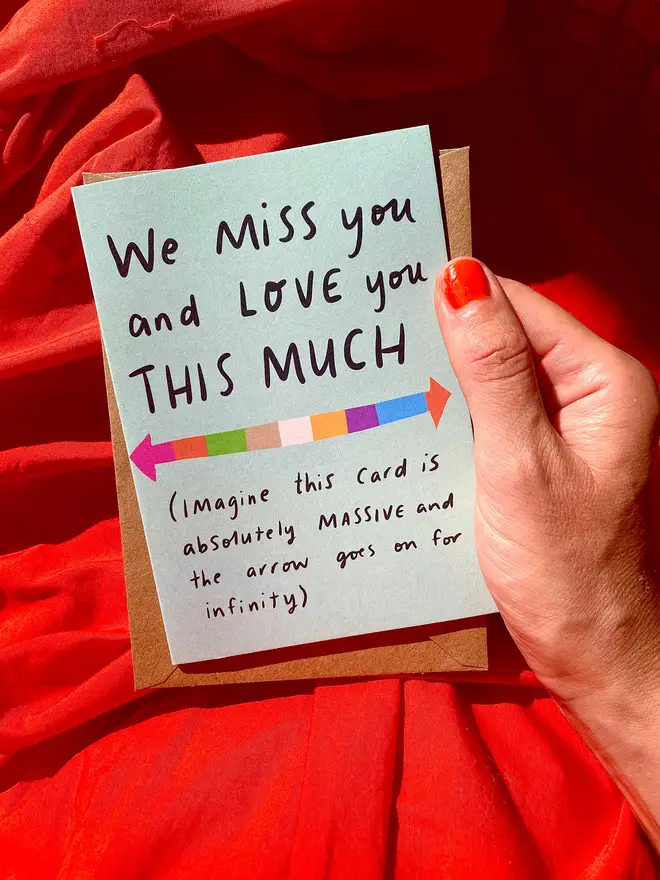 We Miss you
and LOVE you
THIS MUCH
(Imagine this Card is
absolutely MASSIVE and
the arrow goes on for
infinity)